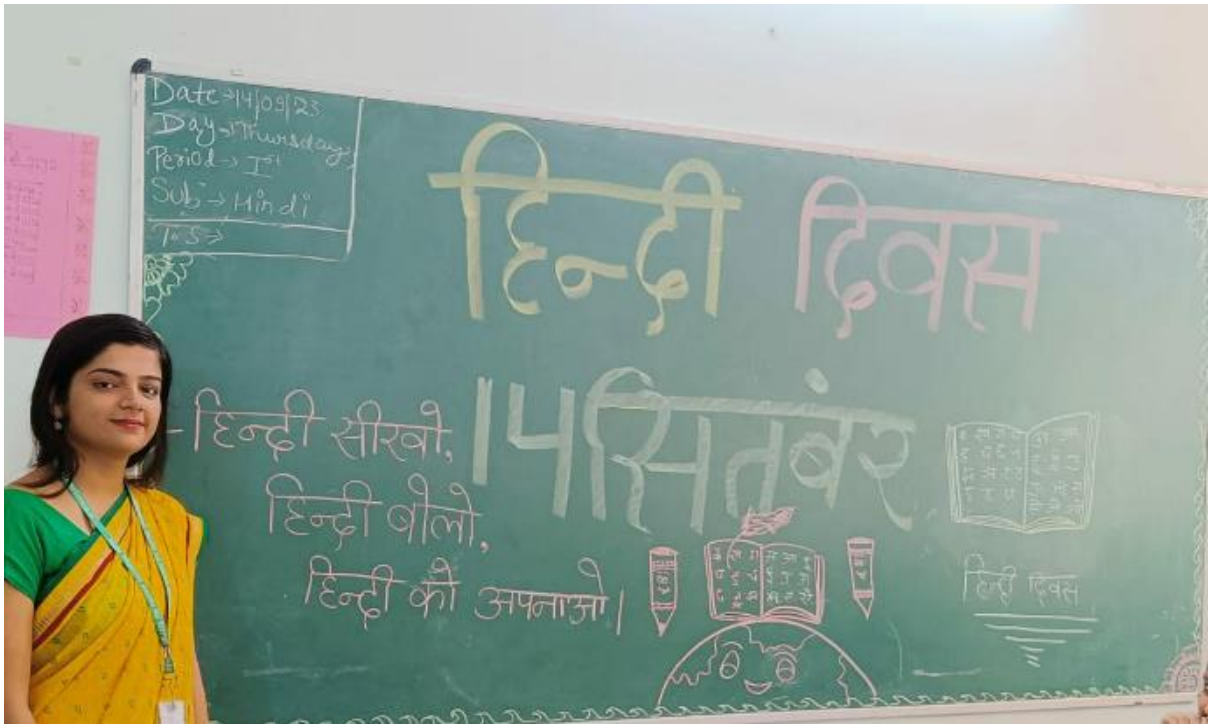 Date→14/09/23
Day→Thursday
Period→ Ist
Sub→ Hindi
T.S→
हिन्दी दिवस
14 सितंबर
-हिन्दी सीखो,
हिन्दी बोलो,
हिन्दी को अपनाओ।
हिन्दी दिवस